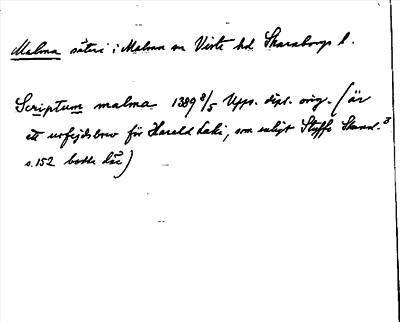 Malma säteri i Malma sn Viste hd. Skaraborgs l.
Scriptum malma 1389 8/5 Upps. dipl. orig. (är
ett urfejdsbrev för Harald Laki, som enligt Styffe Skand.³
s. 152 bodde här)